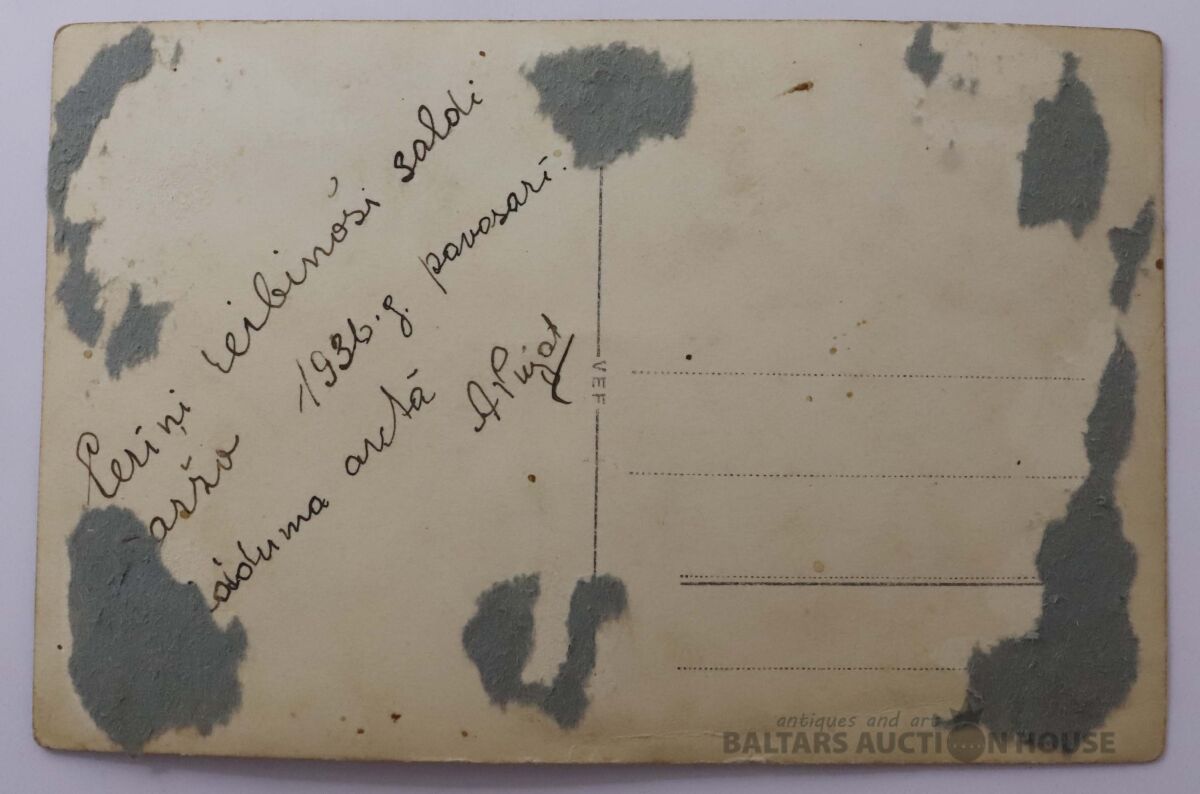 Ceriņi reibinoši saldi
1936. g. pavasarī.
āduma arctā
VEF
antiques and art
BALTARS AUCTION HOUSE